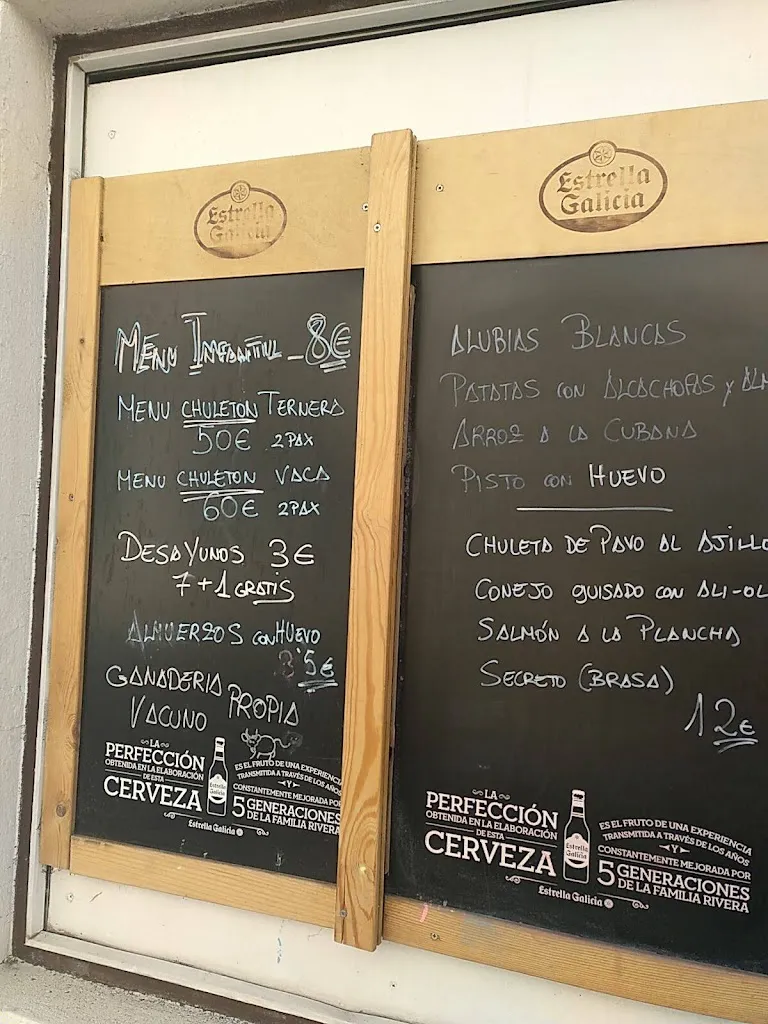 Estrella
Galicia
MENU INFANTIL - 8€
MENU CHULETON TERNERA
50€ 2 PAX
MENU CHULETON VACA
60€ 2 PAX
DESAYUNOS 3€
7+1 GRATIS
ALMUERZOS CON HUEVO
3'5€
GANADERIA PROPIA
VACUNO
LA
PERFECCIÓN
OBTENIDA EN LA ELABORACIÓN
DE ESTA
CERVEZA
ES EL FRUTO DE UNA EXPERIENCIA
TRANSMITIDA A TRAVÉS DE LOS AÑOS
Y
CONSTANTEMENTE MEJORADA POR
5 GENERACIONES
DE LA FAMILIA RIVERA
Estrella Galicia
Estrella
Galicia
ALUBIAS BLANCAS
PATATAS CON ALCACHOFAS Y ALM
ARROZ A LA CUBANA
PISTO CON HUEVO
CHULETA DE PAVO AL AJILLO
CONEJO GUISADO CON ALI-OL
SALMÓN A LA PLANCHA
SECRETO (BRASA)
12€
LA
PERFECCIÓN
OBTENIDA EN LA ELABORACIÓN
DE ESTA
CERVEZA
Estrella
Galicia
ES EL FRUTO DE UNA EXPERIENCIA
TRANSMITIDA A TRAVÉS DE LOS AÑOS
Y
CONSTANTEMENTE MEJORADA POR
5 GENERACIONES
DE LA FAMILIA RIVERA
Estrella Galicia